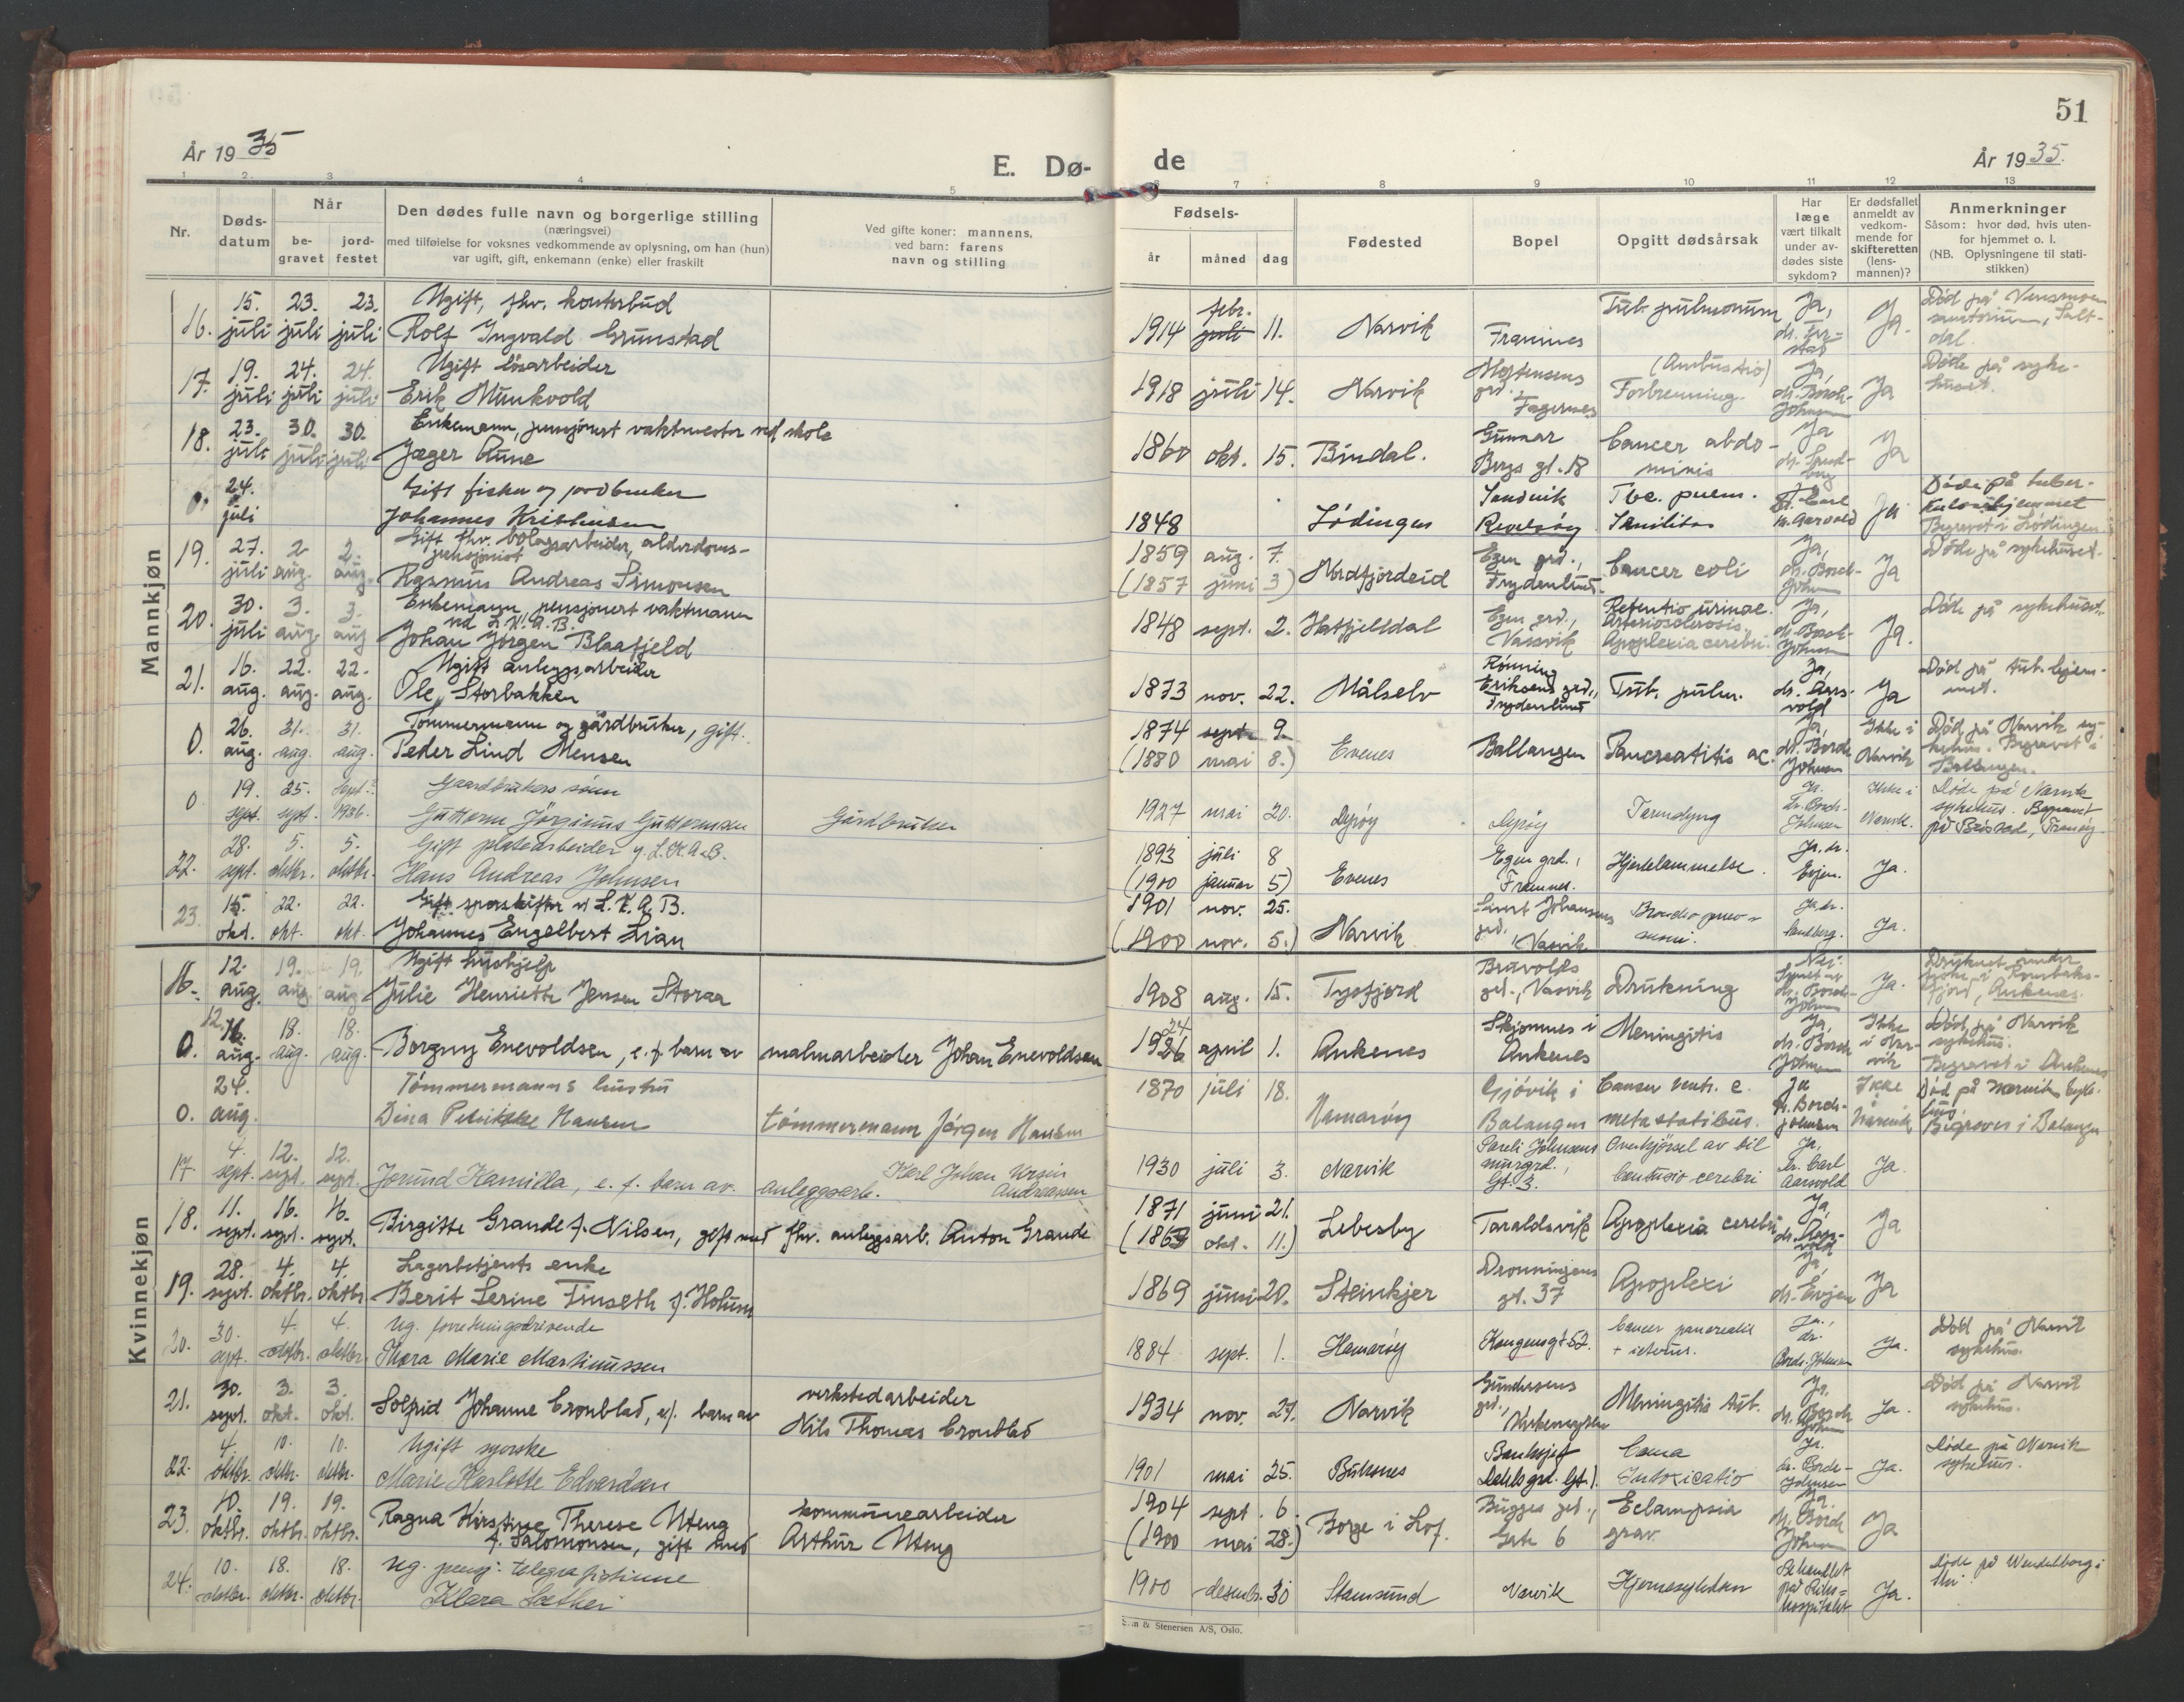 51
År 1935
E. Dø-
de
År 1935.
1 2. 3 4 5 6 7 8 9 10 11 12 13
Nr.
Døds-
datum
Når
be-
gravet
jord-
festet
Den dødes fulle navn og borgerlige stilling
(næringsvei)
med tilføielse for voksnes vedkommende av oplysning, om han (hun)
var ugift, gift, enkemann (enke) eller fraskilt
Ved gifte koner: mannens,
ved barn: farens
navn og stilling
Fødsels-
år
måned
dag
Fødested
Bopel
Opgitt dødsårsak
Har
læge
vært tilkalt
under av-
dødes siste
sykdom?
Er dødsfallet
anmeldt av
vedkom-
mende for
skifteretten
(lens-
mannen)?
Anmerkninger
Såsom: hvor død, hvis uten-
for hjemmet o. l.
(NB. Oplysningene til stati-
stikken)
Mannkjøn
16. 15. juli 23. juli 23. juli
Ugift, fhv. kontorbud
Rolf Ingvald Grunstad
1914 febr. juli 11. Narvik Framnes
Tub. pulmonum
Ja,
Ja.
Død på
17. 19. juli 24. juli 24. juli
Ugift løsarbeider
Erik Munkvold
1918 juli 14. Narvik
Mortensens grd. Fagernes
(Ambustio)
Forbrenning.
Ja, dr. Borch-Johnsen
Ja
Døde på syke-
huset.
18. 23. juli 30. juli 30. juli
Enkemann, pensjonert vaktmester ved skole
Jæger Aune
1860 okt. 15. Bindal.
Gunnar
Bergs gt. 18
Cancer abdo-
minis
Ja
Ja
0. 24. juli
Gift fisker og jordbruker
Johannes Kristensen
1848 Lødingen
Sandvik
Tbc. pulm.
Senilitas
Ja
Døde på tuber-
kulosehjemmet
Begravet i Lødingen
19. 27. juli 2. aug. 2. aug.
Gift fhv. bolagsarbeider, alderdoms-
pensjonist
Rasmus Andreas Simonsen
1859 aug. 7.
(1857 juni 3)
Nordfjordeid
Egen grd.,
Frydenlund.
Cancer coli
Ja,
dr. Borch-
Johnsen
Ja
Døde på sykehuset.
20. 30. juli 3. aug. 3. aug
Enkemann, pensjonert vaktmann
ved L.K.A.B.
Johan Jørgen Blaafjeld
1848 sept. 2. Hatfjelldal
Egen grd.,
Vassvik
Retentio urinae.
Arteriosclerosis.
Apoplexia cerebri.
Ja,
dr. Borch-
Johnsen
Ja.
Døde på sykehuset.
21. 16. aug. 22. aug. 22. aug.
Ugift anleggsarbeider
Ole Storbakken
1873 nov. 22. Målselv
Rønning
Eriksens grd.,
Frydenlund
Tub. pulm.
Ja,
dr. Aars-
vold
Ja
Død på tub. hjem-
met.
0. 26. aug. 31. aug. 31. aug.
Tømmermann og gårdbruker, gift.
Peder Lind Mensen
1874 sept. 9.
(1880 mai 8.)
Evenes
Ballangen
Pancreatitis ac.
Ja,
dr. Borch
Johnsen
Ikke i
Narvik
Død på Narvik sy-
kehus. Begravet i
Ballangen.
0 19. sept. 25. sept. Sept. ? 1936.
Gaardbrukers sønn
Guttorm Jørginus Guttormsen
Gårdbruker
1927 mai 20. Dyrøy Dyrøy
Tarmslyng
Ja.
Dr. Borch-
Johnsen
Ikke i
Narvik.
Døde på Narvik
sykehus. Begravet
22. 28. sept. 5. oktbr. 5. oktbr.
Gift platearbeider v. L.K.A.B.
Hans Andreas Johnsen
1893 juli 8
(1900 januar 5)
Evenes
Egen grd.,
Framnes.
Hjertelammelse.
Ja, dr.
Evjen.
Ja.
23. 15. okt. 22. okt. 22. okt.
Gift sporskifter v/ L.K.A.B.
Johannes Engelbert Lian
1901 nov. 25.
(1900 nov. 5.)
Narvik
Johansens
grd.
Vasvik
Ja, dr.
Sandberg.
Ja.
Kvinnekjøn
16. 12. aug. 19. aug 19. aug
Ugift hushjelp
Julie Henriette Jensen Storaa
1908 aug. 15. Tysfjord
Bravolds
grd., Vasvik
Drukning
Nei.
Synet av
dr. Borch-
Johnsen
Ja.
Druknet under
Ankenes.
0. 12. 16. aug. 18. aug. 18. aug.
Borgny Enevoldsen, e. f. barn av
malmarbeider Johan Enevoldsen
24
1926 april 1. Ankenes
Skjomnes i
Ankenes
Meningitis
Ja,
dr. Borch
Johnsen
Ikke
i Nar-
vik
Død på Narvik
sykehus.
Begravet i Ankenes
0. 24. aug.
Tømmermanns hustru
Dina Petrikke Hansen
tømmermann Jørgen Hansen
1870 juli 18. Hamarøy
Gjövik i
Balangen
Cancer ventr. c.
metastatibus.
Ja
dr. Borch-
Johnsen
Ikke
i
Narvik
Død på Narvik syke-
hus.
Begraves i Balangen
17. 4. sept. 12. sept. 12. sept.
Jorund Kamilla, e. f. barn av.
anleggsarb.
Karl Johan Ursin
Andreassen
1930 juli 3. Narvik
Johnsens
murgrd.,
Gt. 3.
Overkjørsel av bil
Contusio cerebri
Ja,
Dr. Carl
Aarsvold
Ja.
18. 11. sept. 16. sept. 16. sept.
Birgitte Grande f. Nilsen, gift med
fhv. anleggsarb. Anton Grande
1871 juni 21.
(1869 okt. 11.)
Lebesby
Taraldsvik
Apoplexia cerebri
Ja,
dr. Aars-
vold
Ja
19. 28. sept. 4. oktbr. 4. oktbr
Lagerbetjents enke
Berit Serine Finseth f. Holum
1869 juni 20. Steinkjer
Dronningens
gt. 37
Apoplexi
Ja,
dr. Evjen
Ja
20. 30. sept. 4. oktbr. 4. oktbr.
Ug. forretningsdrivende
Thora Marie Martinussen
1884 sept. 1. Hamarøy
Kongensgt 52.
Cancer pancreatis
+ icterus.
Ja.,
dr.
Borch-Johnsen
Ja.
Død på Narvik
sykehus.
21. 30. sept. 3. okt. 3. okt.
Solfrid Johanne Cronblad, e.f. barn av
verkstedarbeider
Nils Thomas Cronblad
1934 nov. 27. Narvik
Gundersens
grd.,
Meningitis tub.
Ja,
dr. Borch
Johnsen
Ja.
Død på Narvik
sykehus.
22. 4. oktbr. 10. oktbr. 10. oktbr.
Ugift syerske
Marie Karlotte Edvardsen
1901 mai 25. Buksnes
Banksjef
Coma
Intoxicatio
Ja.
Dr. Borch-
Johnsen
Ja.
Døde på Narvik
sykehus.
23. 10. oktbr. 19. oktbr. 19. oktbr.
Ragna Kirstine Therese Uteng
f. Salomonsen, gift med
kommunearbeider
Arthur Uteng
1904 sept. 6.
(1900 mai 28.)
Borge i Lof.
Bugges grd.,
Gate 6
Eclampsia
grav.
Ja.
dr. Borch
Johnsen
Ja
24. 10. oktbr. 18. oktbr. 18. oktbr.
Ug. pensj. telegrafistinne
Klara Sæther
1900 desembr. 30 Stamsund Narvik
Hjernesykdom
Behandlet
på Riks-
hospitalet
Ja.
Døde på
& Stenersen A/S, Oslo.